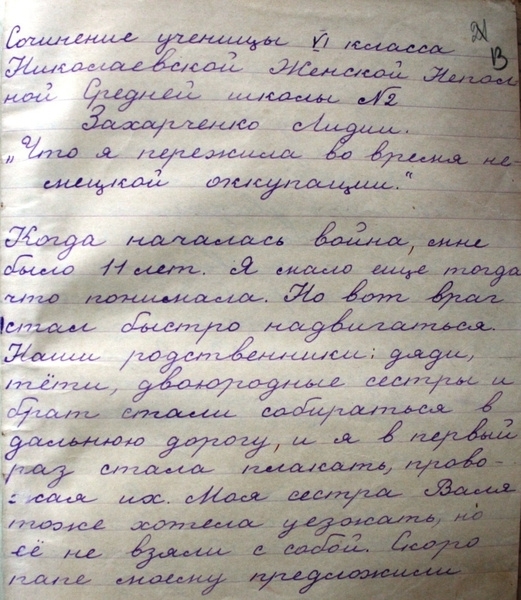 Сочинение ученицы VI класса
Николаевской Женской Непол
ной Средней школы №2
Захарченко Лидии.
„Что я пережила во время не-
мецкой оккупации."
Когда началась война, мне
было 11 лет. Я мало еще тогда
что понимала. Но вот враг
стал быстро надвигаться.
Наши родственники: дяди,
тёти, двоюродные сестры и
брат стали собираться в
дальнюю дорогу, и я в первый
раз стала плакать, прово-
жая их. Моя сестра Валя
тоже хотела уезжать, но
её не взяли с собой. Скоро
папе моему предложили